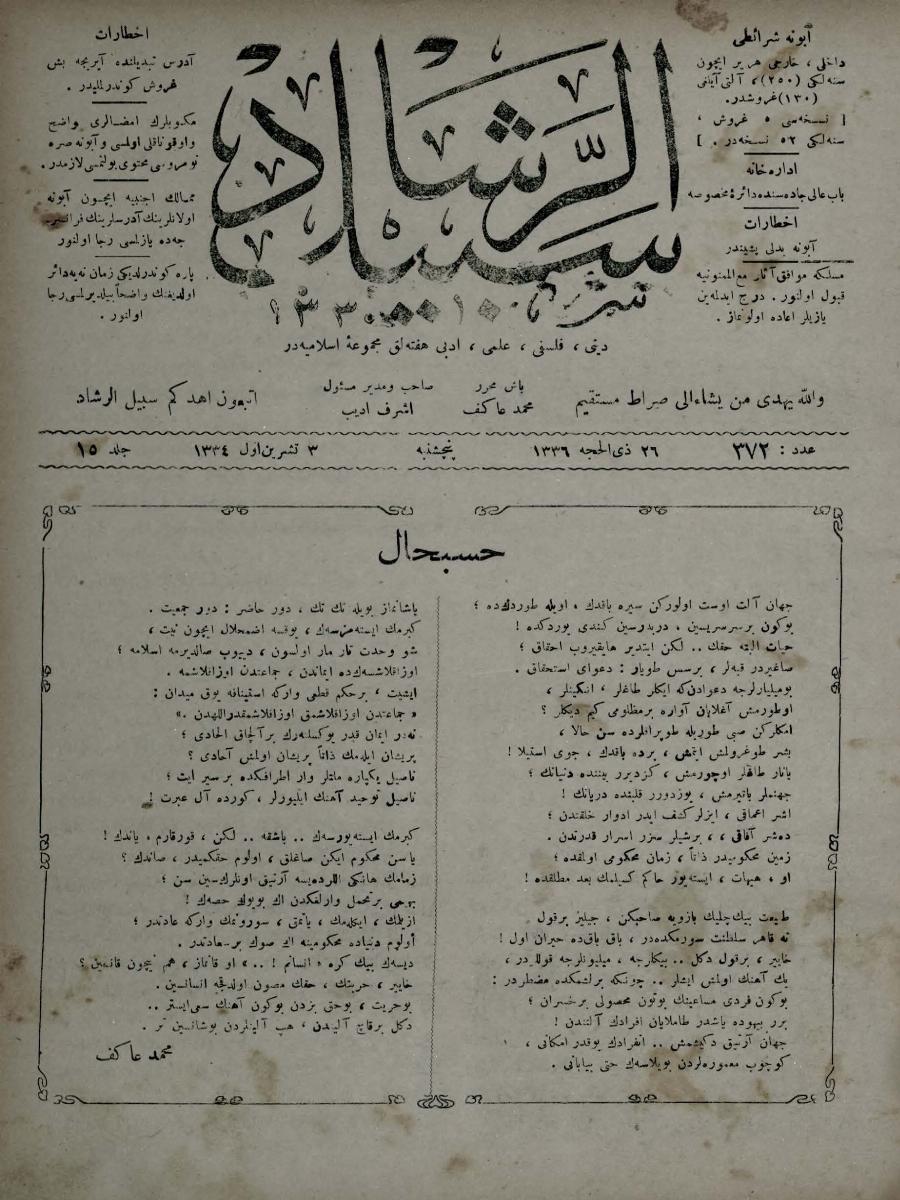 آبونه شرائطی
داخلی ، خارجی هر یر ایچون
سنه‌لکی (٢٥٠)، آلتی آیلغی
(١٣٠)غروشدر.
[ نسخه‌سی ٥ غروش ،
سنه‌لکی ٥٢ نسخه‌در . ]
اداره خانه
باب عالی جاده‌سنده دائرهٔ مخصوصه
اخطارات
آبونه بدلی پشیندر
مسلکه موافق آثار مع الممنونیه
قبول اولنور . درج ایدلمه‌ین
یازیلر اعاده اولونماز .
سبیل الرشاد
اخطارات
آدرس تبدیلنده آیریجه بش
غروش کوندرلملیدر .
مکتوبلرك امضالری واضح
واوقوناقلی اولمسی و آبونه صره
نومروسی محتوی بولنمسی لازمدر.
ممالك اجنبیه ایچون آبونه
اولانلرینك آدرسلرینك فرانسزجه
جه‌ده یازلمسی رجا اولنور
پاره کوندرلدیکی زمان نه‌یه دائر
اولدیغنك واضحاً بیلدیرلمسی رجا
اولنور .
دینی ، فلسفی ، علمی ، ادبی هفته‌لق مجموعهٔ اسلامیه‌در
والله یهدی من یشاء الی صراط مستقیم
باش محرر
محمد عاکف
صاحب ومدیر مسئول
اشرف ادیب
اتبعون اهدکم سبیل الرشاد
عدد : ٣٧٢
٢٦ ذی الحجه ١٣٣٦
پنجشنبه
٣ تشرین اول ١٣٣٤
جلد ١٥
حسبحال
جهان آلت اوست اولورکن سیره باقدك ، اویله طوردكده ؛
بوکون بر سرسریسین ، دربدرسین کندی یوردکده !
حیات البته حقك .. لکن ایتدیر هایقیروب احقاق ؛
صاغیردر قبه‌لر ، برسس طویار : دعوای استحقاق .
بو میلیارلرجه دعوادن که ایکلر طاغلر ، انکینلر ،
اوطورمش آغلایان آواره بر مظلومی کیم دیکلر ؟
امکلرکن صبی طوریله طوپراقلرده سن حالا ،
بشر طوغرولمش ایتمش ، برده باقدك ، جوی استیلا !
یانار طاغلر اوچورمش ، کزدیرر بیننده دنیانك ؛
جهنملر باتیرمش ، یوزدورر قلبنده دریانك !
اشر اعماقی ، ایزلر کشف ایدر ادوار خلقتدن ؛
ده‌شر آفاقی ، برشیلر سزر اسرار قدرتدن .
زمین محکومیدر ذاتاً ، زمان محکومی اولمقده ؛
او ، هیهات ، ایسته‌یور حاکم کسیلمك بعد مطلقده !
طبیعت بیك چلیك بازویه صاحبکن ، جبلیز بر قول
نه قاهر سلطنت سورمکده‌در ، باق باق‌ده حیران اول !
خایر ، بر قول دکل .. بیکارجه ، میلیونلرجه قوللردر ،
یك آهنك اولمش ایشلر .. چونکه برلشمکده مضطردر :
بوکون فردی مساعینك بوتون محصولی برخسران ؛
برر بیهوده یاشدر طاملایان افرادك آلنندن !
جهان آرتیق دکیشمش .. انفرادك یوقدر امکانی ،
کوچوب معموره‌لردن بویلاسه‌ك حتی بیابانی .
یاشانماز بویله تك تك ، دور حاضر : دور جمعیت .
کبرمك ایسته‌مزسه‌ك ، یوقسه اضمحلال ایچون نیت ،
«شو وحدت تارمار اولسون» دییوب صالدیرمه اسلامه ؛
اوزاقلاشسه‌ك‌ده ایماندن ، جماعتدن اوزاقلاشمه .
ایشیت ، برحکم قطعی وارکه استینافه یوق میدان :
« جماعتدن اوزاقلاشمق اوزاقلاشمقدر اللهدن .»
نه‌در ایمان قدر یوکسلدرك بر آلچاق الحادی ؛
پریشان ایلمك ذاتاً پریشان اولمش آحادی ؟
ناصیل یکپاره ملتلر وار اطرافکده بر سیر ایت ؛
ناصیل توحید آهنك ایلیورلر ، کورده آل عبرت !
کبرمك ایسته‌یورسه‌ك .. باشقه .. لکن ، قورقارم ، یاندك !
یاسن محکوم ایکن صاغلق ، اولوم حقکمیدر ، صاندك ؟
زمامك هانکی اللرده‌یسه آرتیق اونلركسین سن ؛
اولوم دنیاده محکومینه اك صوك بر سعادتدر .
دیسه‌ك بیك کره « انسانم ! .. » او قانماز ، هم نیچون قانسین ؟
خایر ، حریتك ، حقك مصون اولدقجه انسانسین .
بو حریت ، بو حق بزدن بوکون آهنك سعی ایستر ..
محمد عاکف